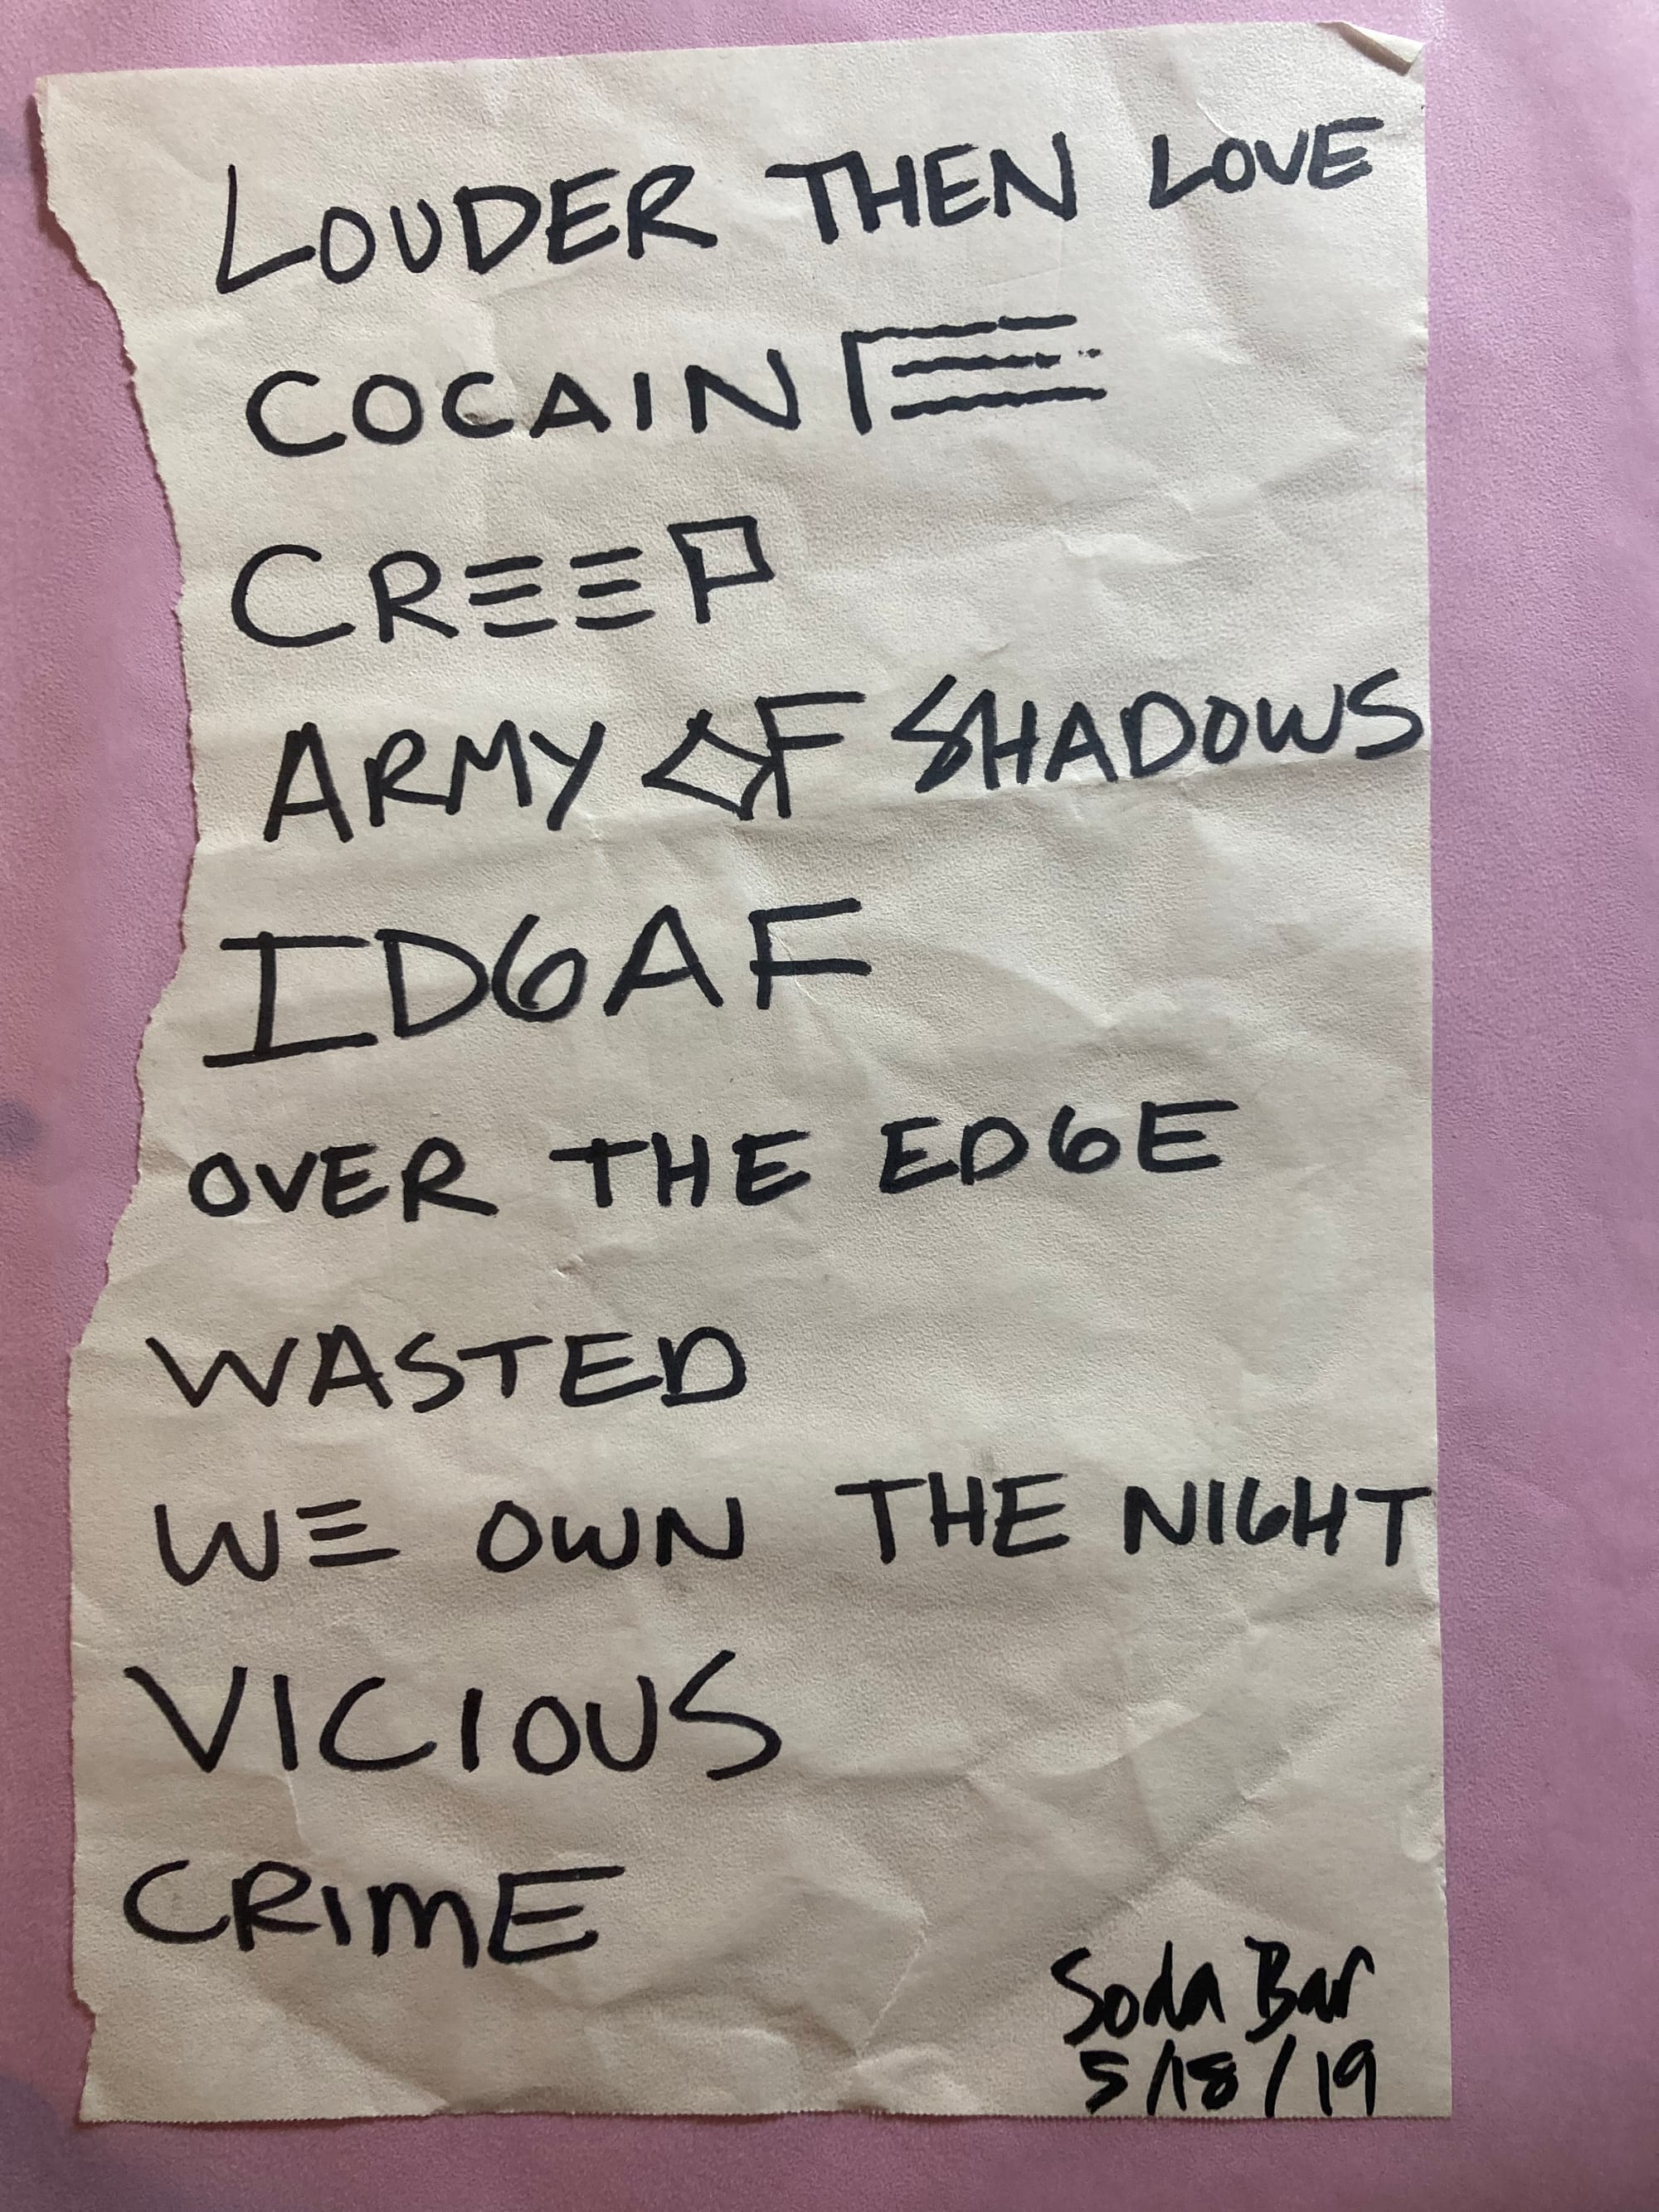 LOUDER THEN LOVE
COCAINE
CREEP
ARMY OF SHADOWS
IDGAF
OVER THE EDGE
WASTED
WE OWN THE NIGHT
VICIOUS
CRIME
Soda Bar
5/18/19